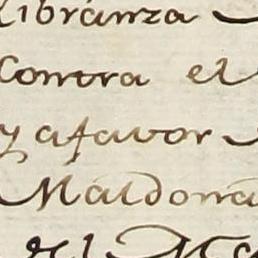 libranza
Contra el
y afavor
Maldona
del Ma